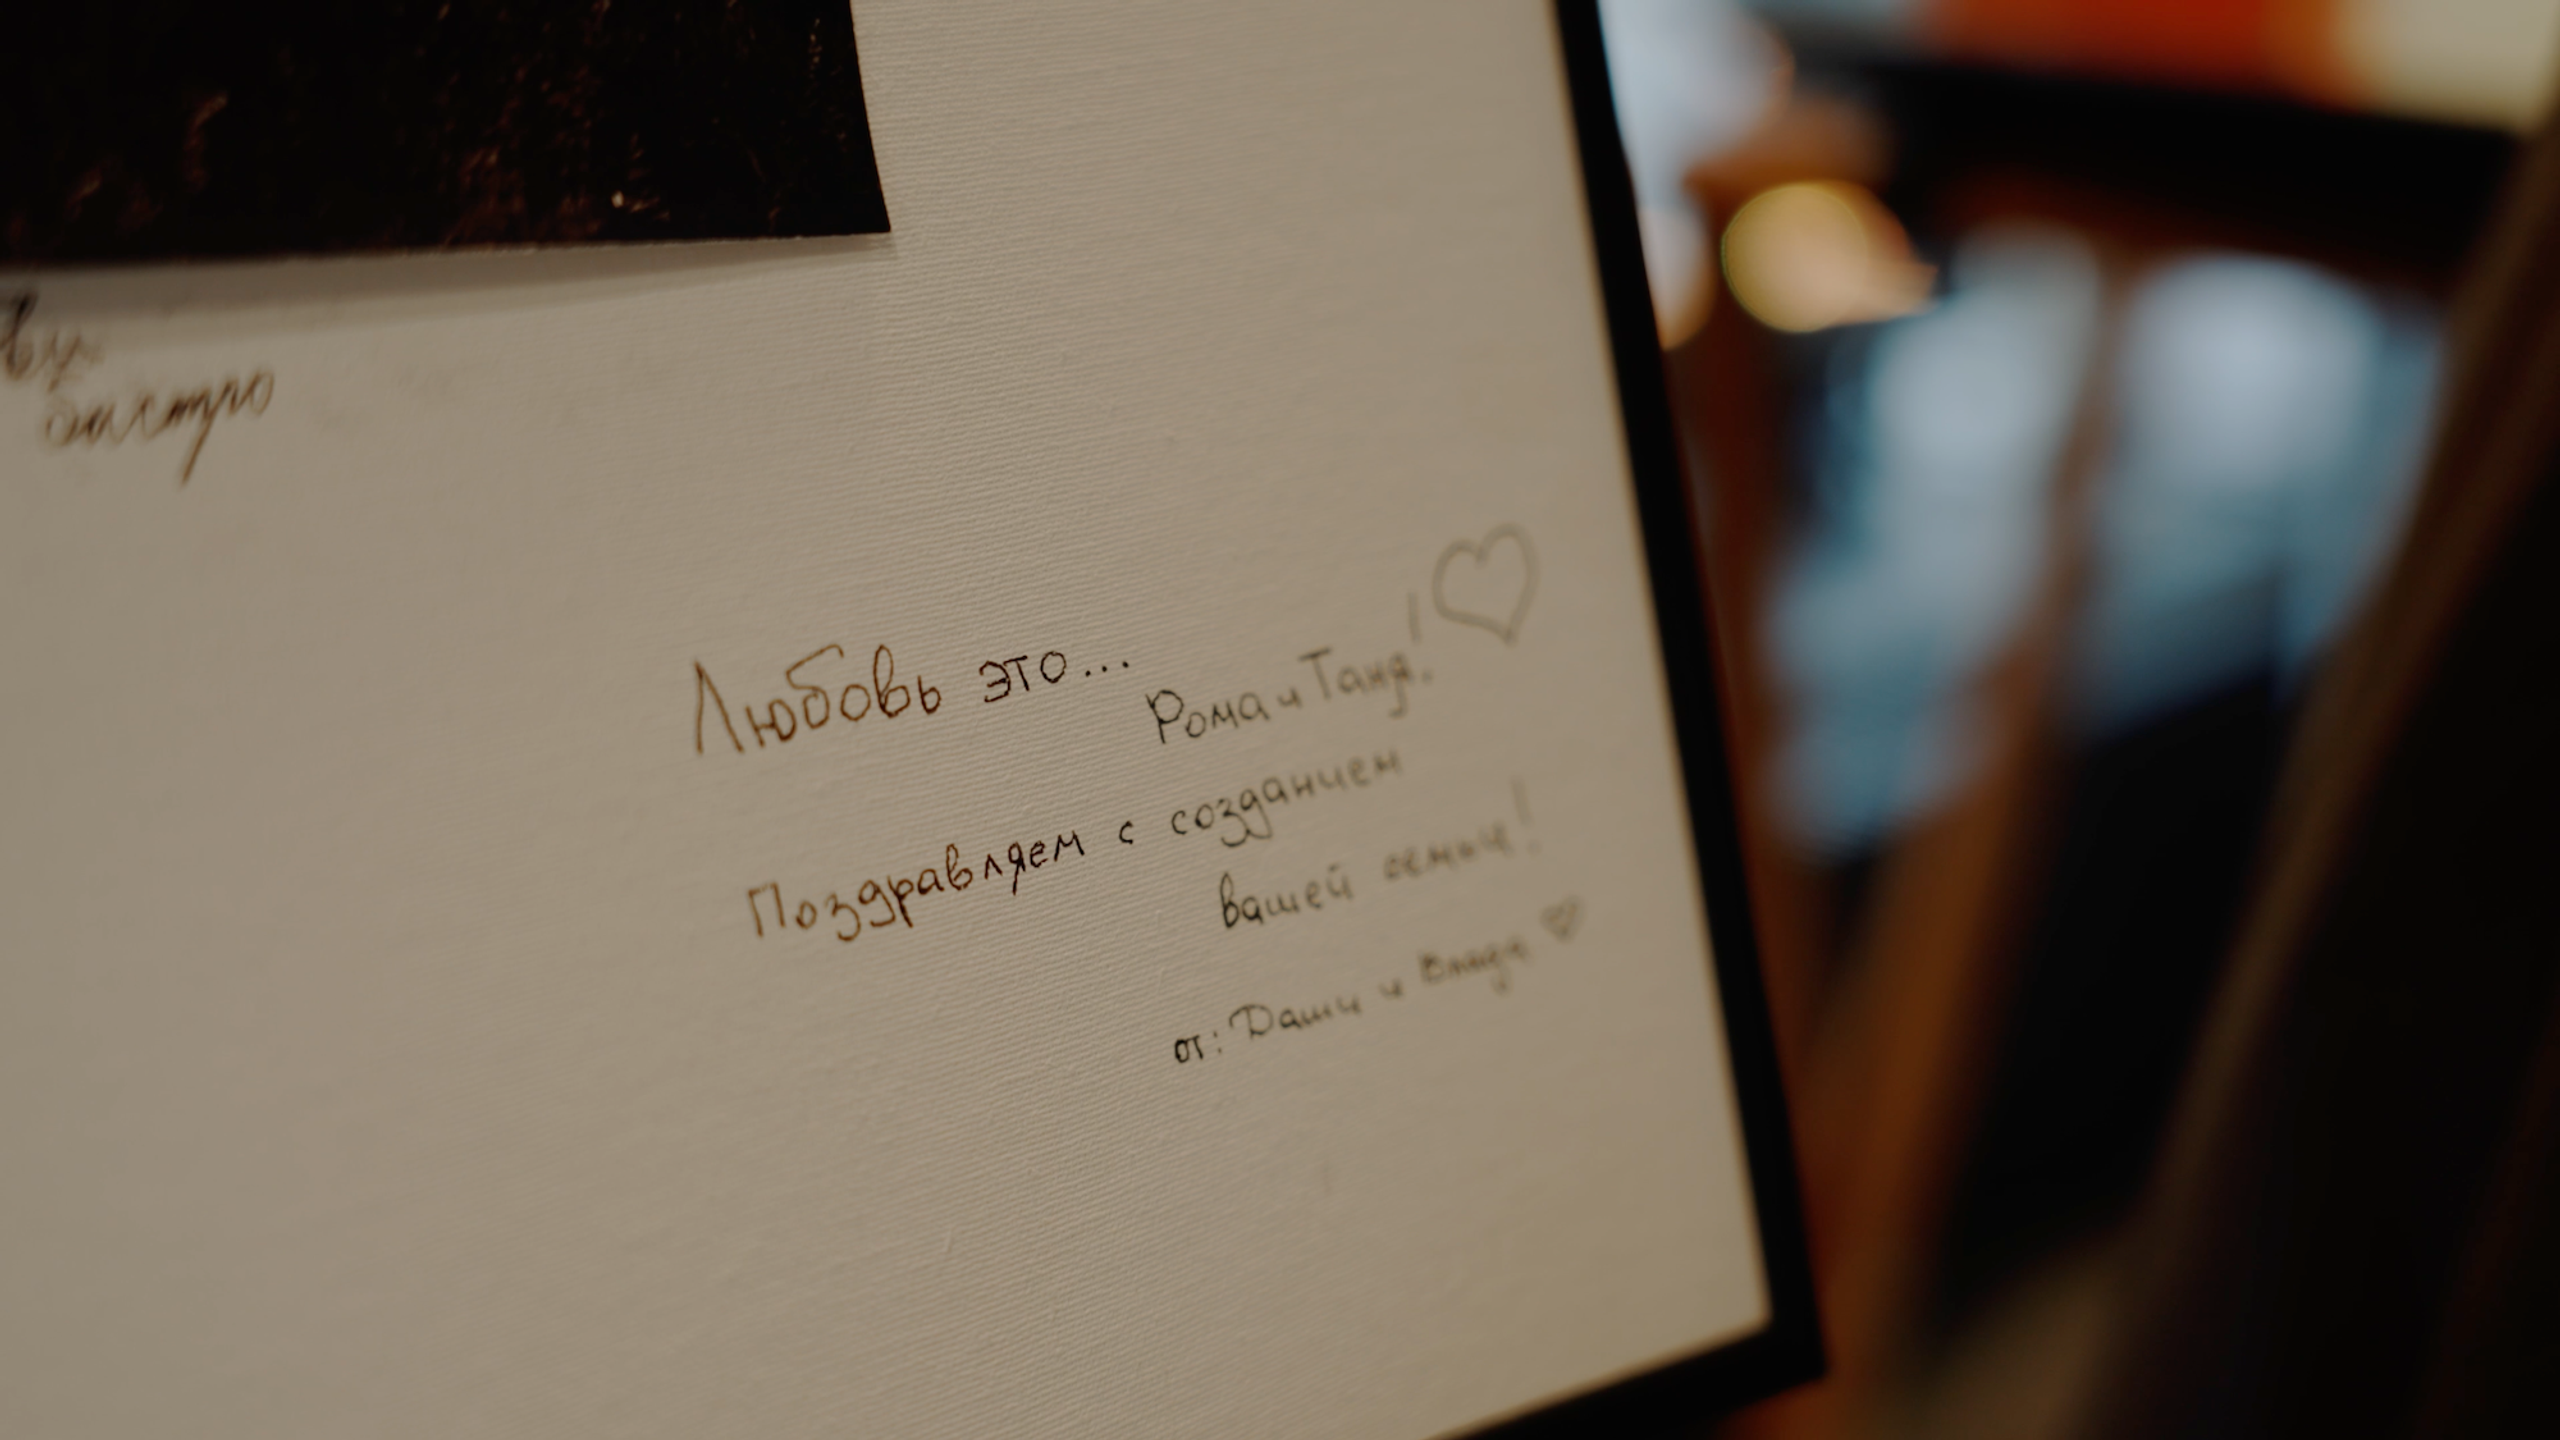 быстро
Любовь это...
Рома и Таня!
Поздравляем с созданием
вашей семьи!
от: Даши и Влада